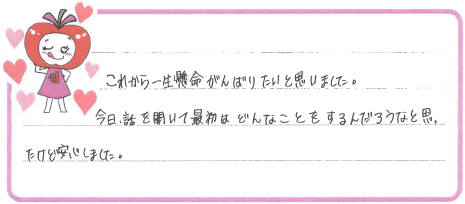 これから一生懸命がんばりたいと思いました。
今日、話を聞いて最初はどんなことをするんだろうなと思っ
たけど安心しました。